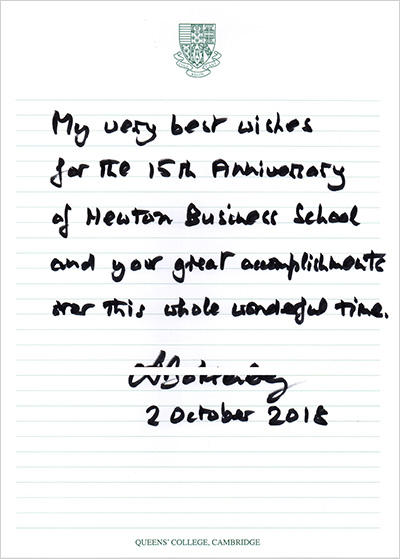 My very best wishes
for the 15th Anniversary
of Newton Business School
and your great accomplishments
over this whole wonderful time.
2 October 2018
QUEENS' COLLEGE, CAMBRIDGE